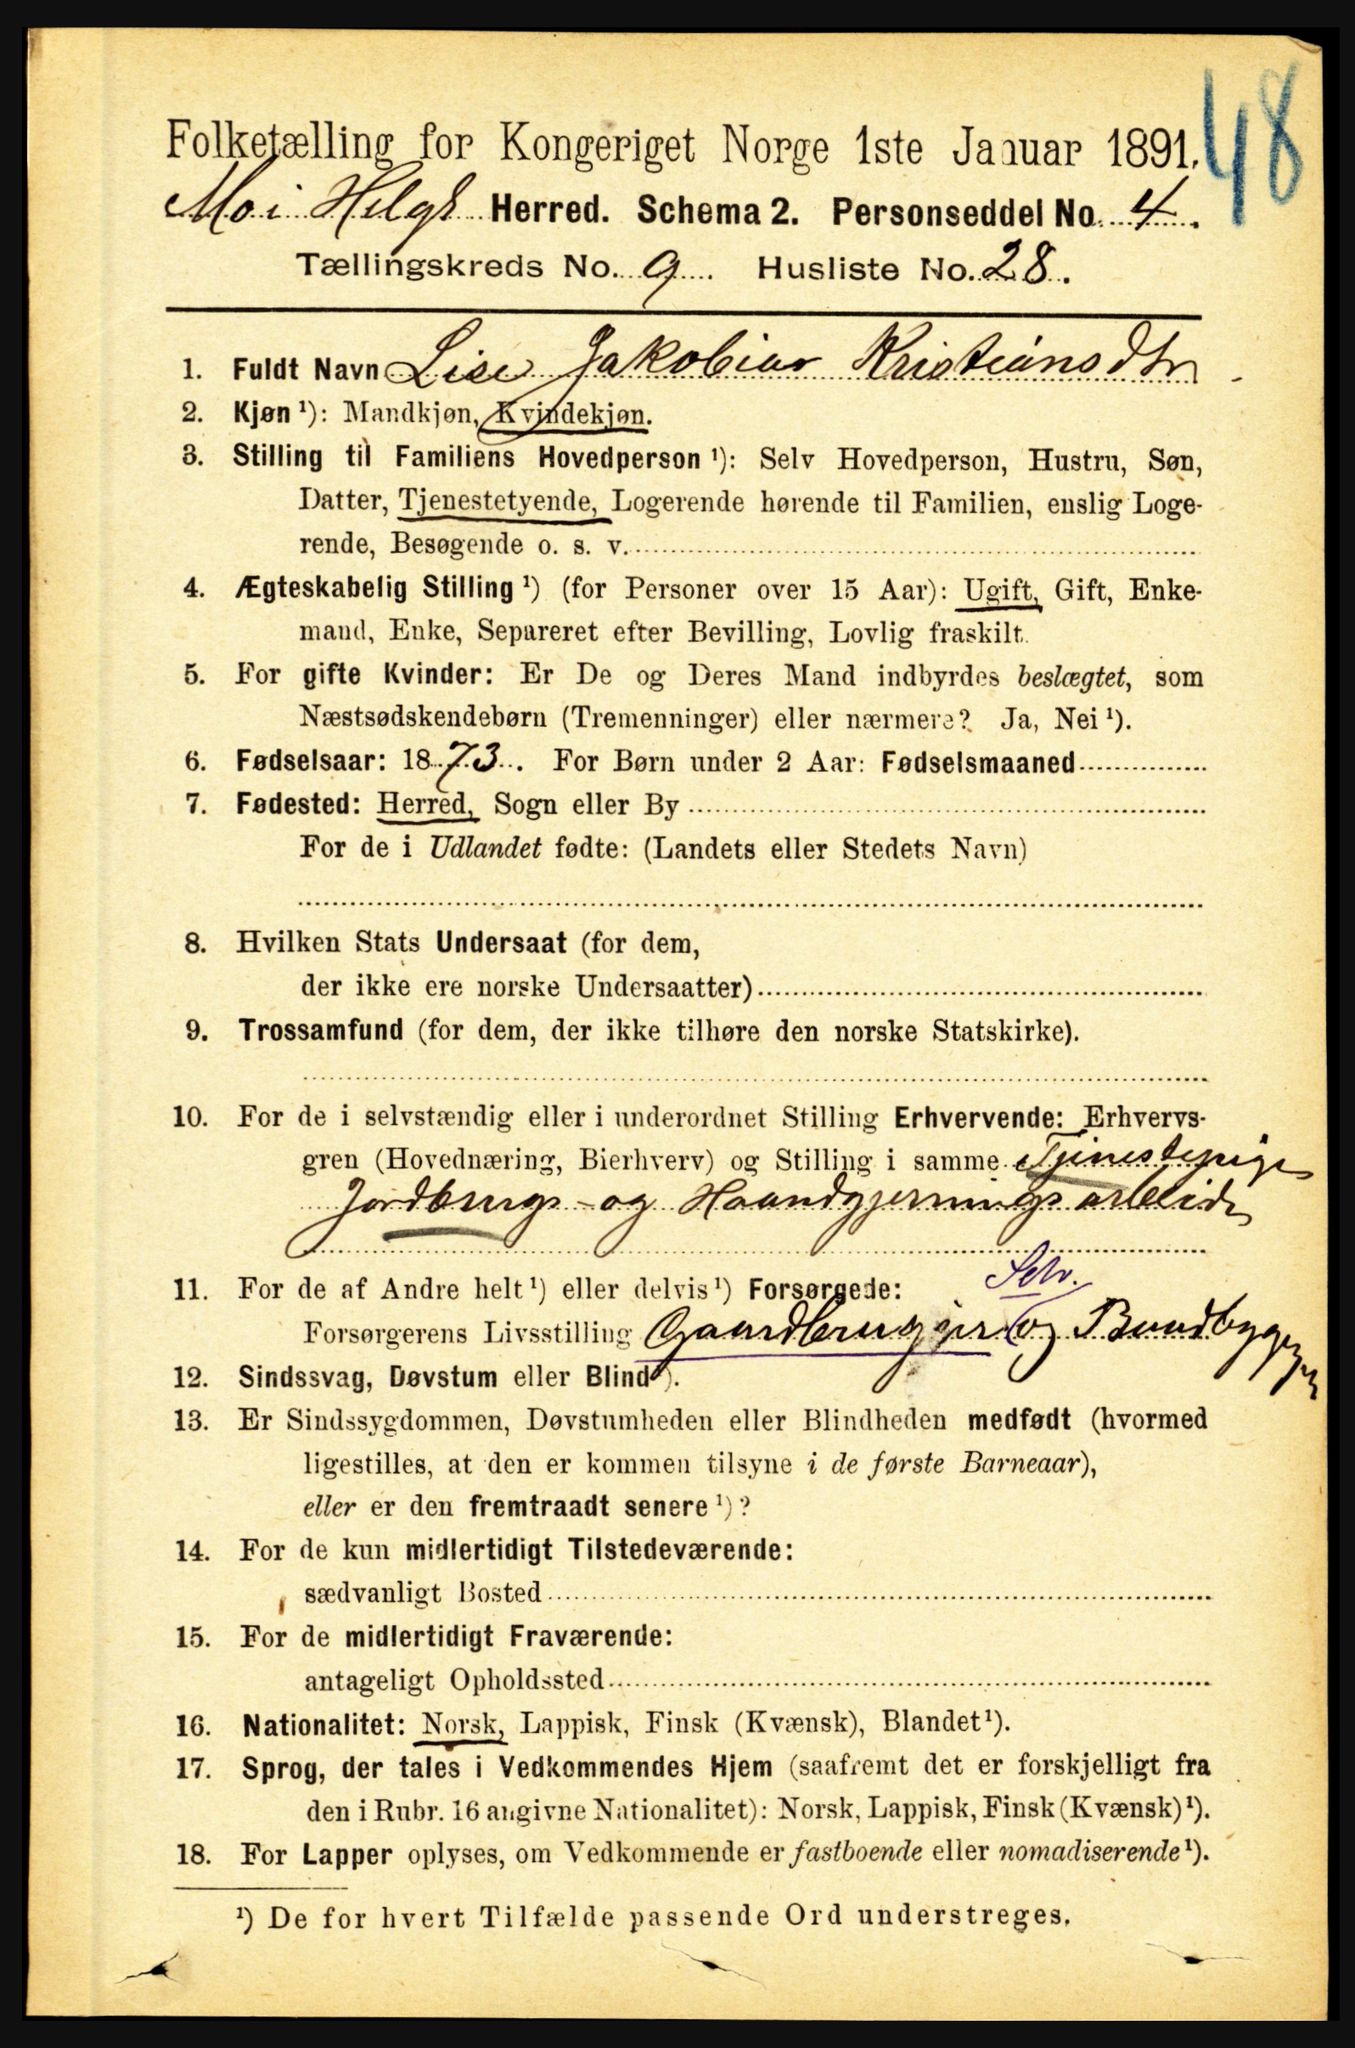 48
Folketælling for Kongeriget Norge 1ste Januar 1891.
Mo i Helgl Herred. Schema 2. Personseddel No. 4.
Tællingskreds No. 9. Husliste No. 28.
1. Fuldt Navn Lise Jakobina Kristiansdtr
2. Kjøn ¹): Mandkjøn, Kvindekjøn.
3. Stilling til Familiens Hovedperson ¹): Selv Hovedperson, Hustru, Søn,
Datter, Tjenestetyende, Logerende hørende til Familien, enslig Loge-
rende, Besøgende o. s. v.
4. Ægteskabelig Stilling ¹) (for Personer over 15 Aar): Ugift, Gift, Enke-
mand, Enke, Separeret efter Bevilling, Lovlig fraskilt.
5. For gifte Kvinder: Er De og Deres Mand indbyrdes beslægtet, som
Næstsødskendebørn (Tremenninger) eller nærmere? Ja, Nei ¹).
6. Fødselsaar: 1873. For Børn under 2 Aar: Fødselsmaaned
7. Fødested: Herred, Sogn eller By
For de i Udlandet fødte: (Landets eller Stedets Navn)
8. Hvilken Stats Undersaat (for dem,
der ikke ere norske Undersaatter)
9. Trossamfund (for dem, der ikke tilhøre den norske Statskirke).
10. For de i selvstændig eller i underordnet Stilling Erhvervende: Erhvervs-
gren (Hovednæring, Bierhverv) og Stilling i samme Tjenestepige
Jordbrugs- og Haandgjerningsarbeide
11. For de af Andre helt ¹) eller delvis ¹) Forsørgede: Selv.
Forsørgerens Livsstilling Gaardbruger og Baadbygger
12. Sindssvag, Døvstum eller Blind ¹).
13. Er Sindssygdommen, Døvstumheden eller Blindheden medfødt (hvormed
ligestilles, at den er kommen tilsyne i de første Barneaar),
eller er den fremtraadt senere ¹)?
14. For de kun midlertidigt Tilstedeværende:
sædvanligt Bosted
15. For de midlertidigt Fraværende:
antageligt Opholdssted
16. Nationalitet: Norsk, Lappisk, Finsk (Kvænsk), Blandet ¹).
17. Sprog, der tales i Vedkommendes Hjem (saafremt det er forskjelligt fra
den i Rubr. 16 angivne Nationalitet): Norsk, Lappisk, Finsk (Kvænsk) ¹).
18. For Lapper oplyses, om Vedkommende er fastboende eller nomadiserende ¹).
¹) De for hvert Tilfælde passende Ord understreges.